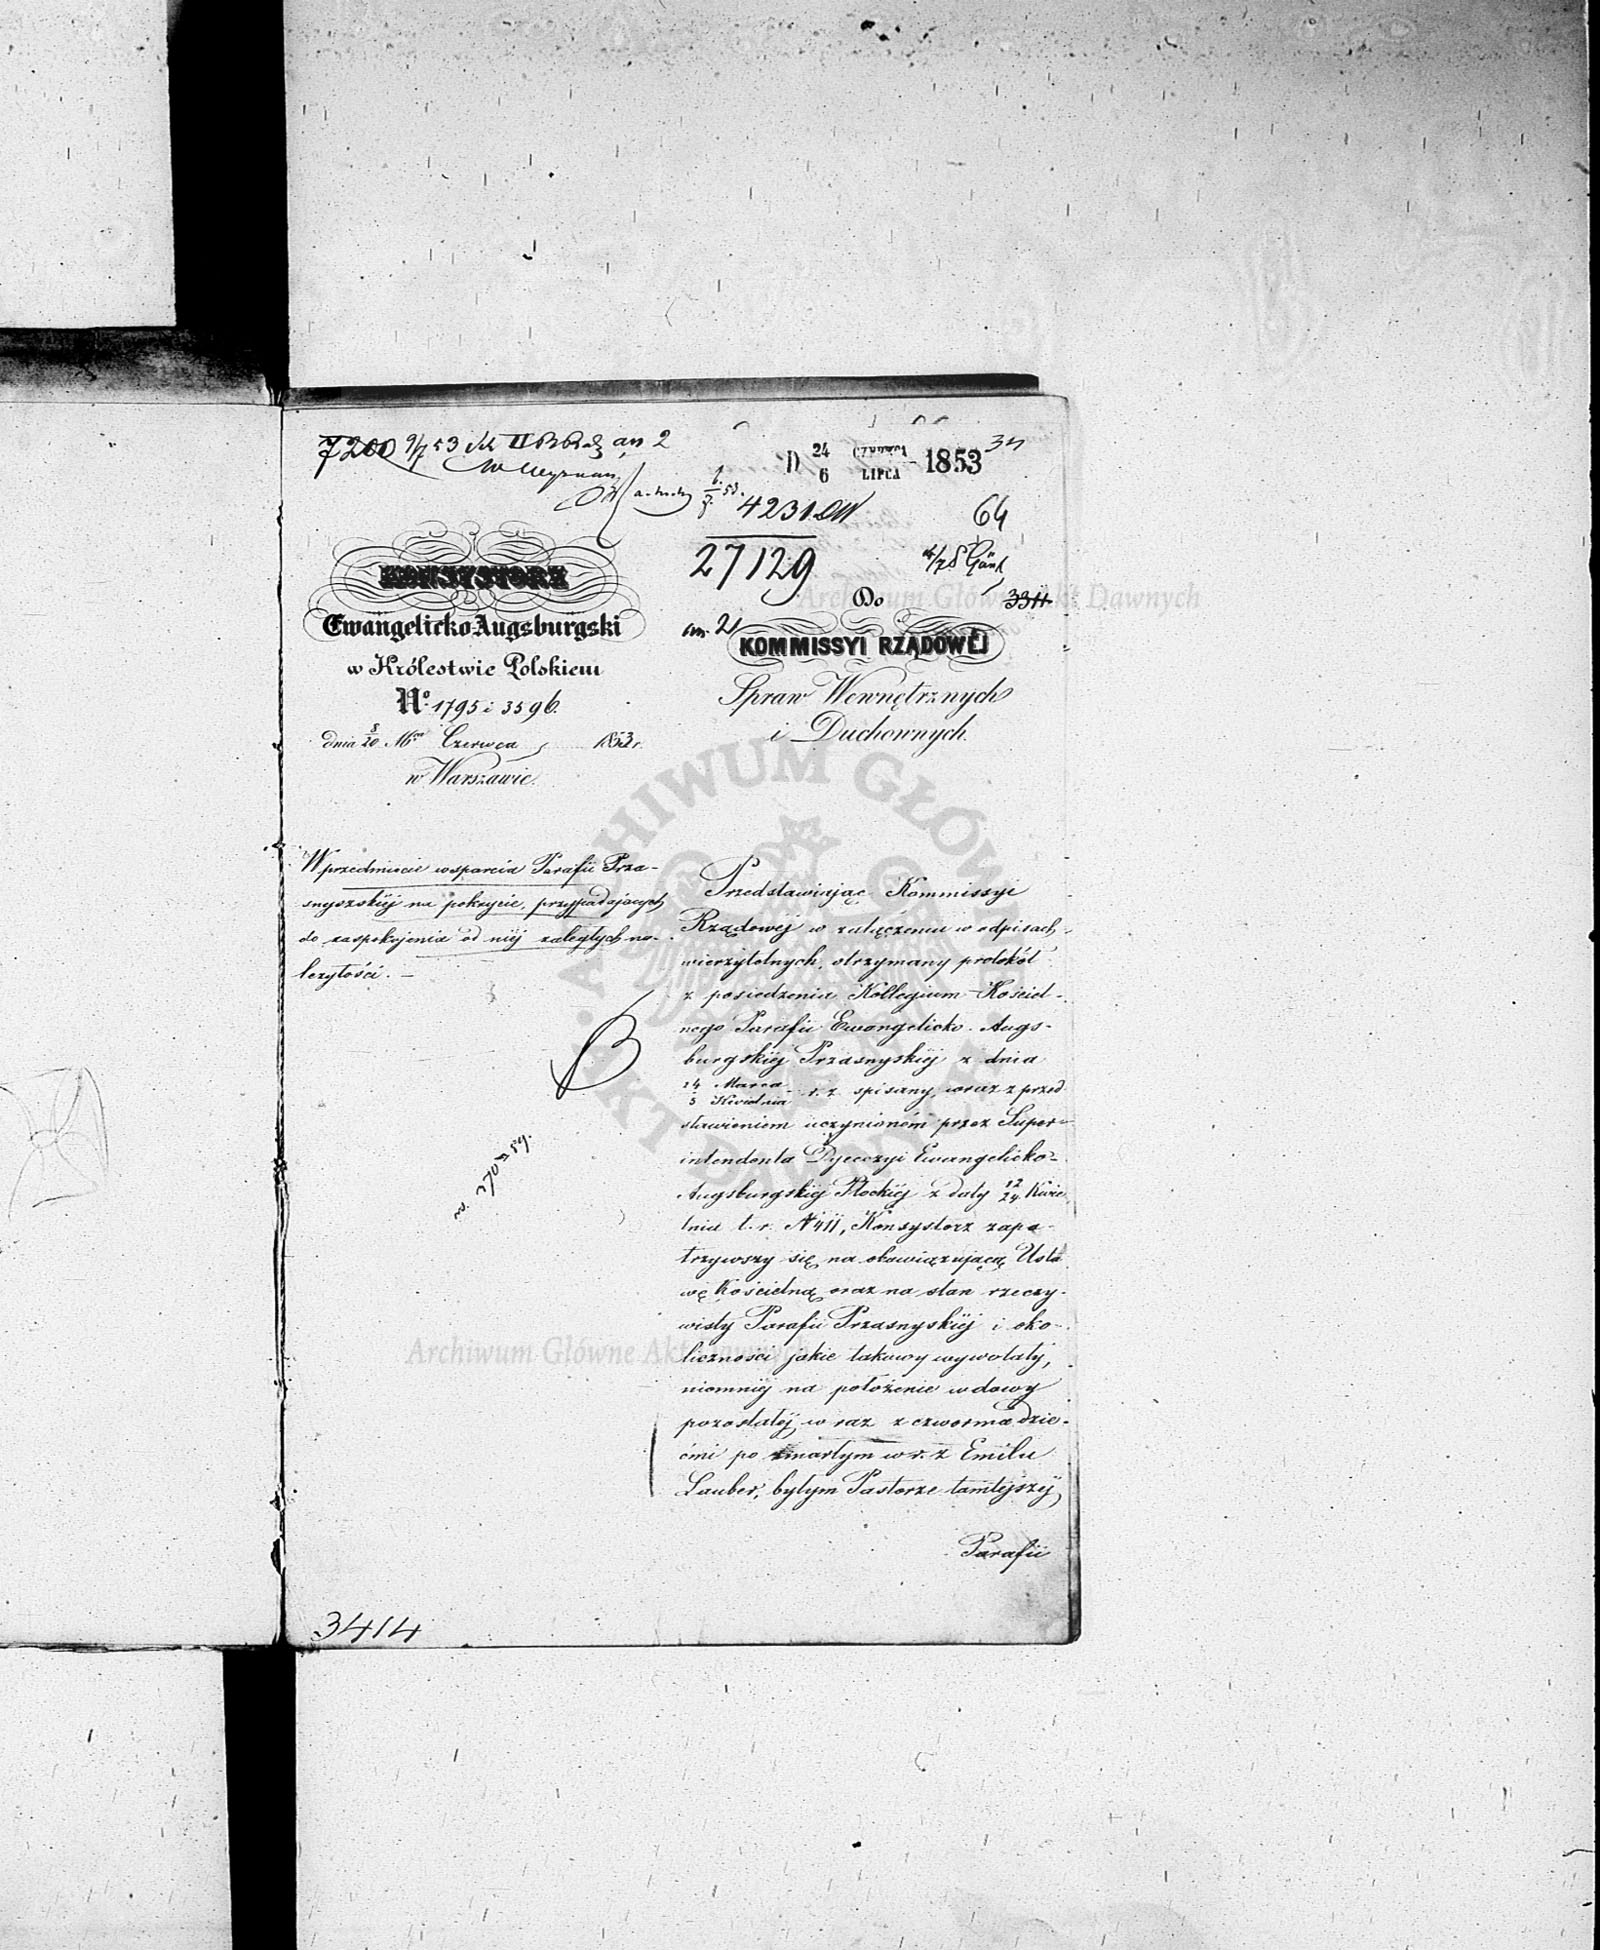 7200 9/7 53 II an 2
D 24/6 CZERWCA/LIPCA 1853
4231
64
27129
3311
an. 2
KONSYSTORZ
Ewangelicko Augsburgski
w Królestwie Polskiem
No. 1795 i 3596.
dnia 8/20 Mca Czerwca 1853 r.
w Warszawie.
Do
KOMMISSYI RZĄDOWÉJ
Spraw Wewnętrznych
i Duchownych.
W przedmiocie wsparcia Parafii Prza-
snyszskiéj na pokrycie, przypadających
do zaspokojenia od niéj zaległych na-
leżytości. —
Przedstawiając Kommissyi
Rządowéj w załączeniu w odpisach
wierzytelnych, otrzymany protokół
z posiedzenia Kollegium Kościel-
nego Parafii Ewangelicko-Augs-
burgskiéj Przasnyskiéj z dnia
24 Marca/5 Kwietnia r. z. spisany, wraz z przed
stawieniem uczynioném przez Super-
intendenta Dyecezyi Ewangelicko-
Augsburgskiéj Płockiéj z daty 12/24 Kwie
tnia t. r. N 411, Konsystorz zapa-
trzywszy się na obowiązującą Usta
wę Kościelną oraz na stan rzeczy-
wisty Parafii Przasnyskiéj i oko-
liczności jakie takowy wywołały,
niemniéj na położenie wdowy
pozostałéj wraz z czworma dzie-
ćmi po zmarłym w r. z. Emilu
Lauber, byłym Pastorze tamtejszéj
Parafii
3414
ARCHIWUM GŁÓWNE AKT DAWNYCH
Archiwum Główne Akt Dawnych
Archiwum Główne Akt Dawnych